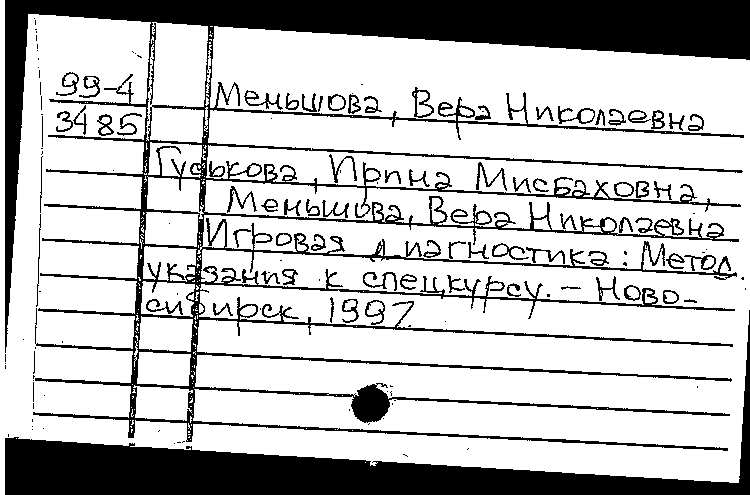 99-4 Меньшова, Вера Николаевна
3485
Гуськова, Ирина Мисбаховна,
Меньшова, Вера Николаевна
Игровая диагностика: Метод.
указания к спецкурсу. – Ново-
сибирск, 1997.